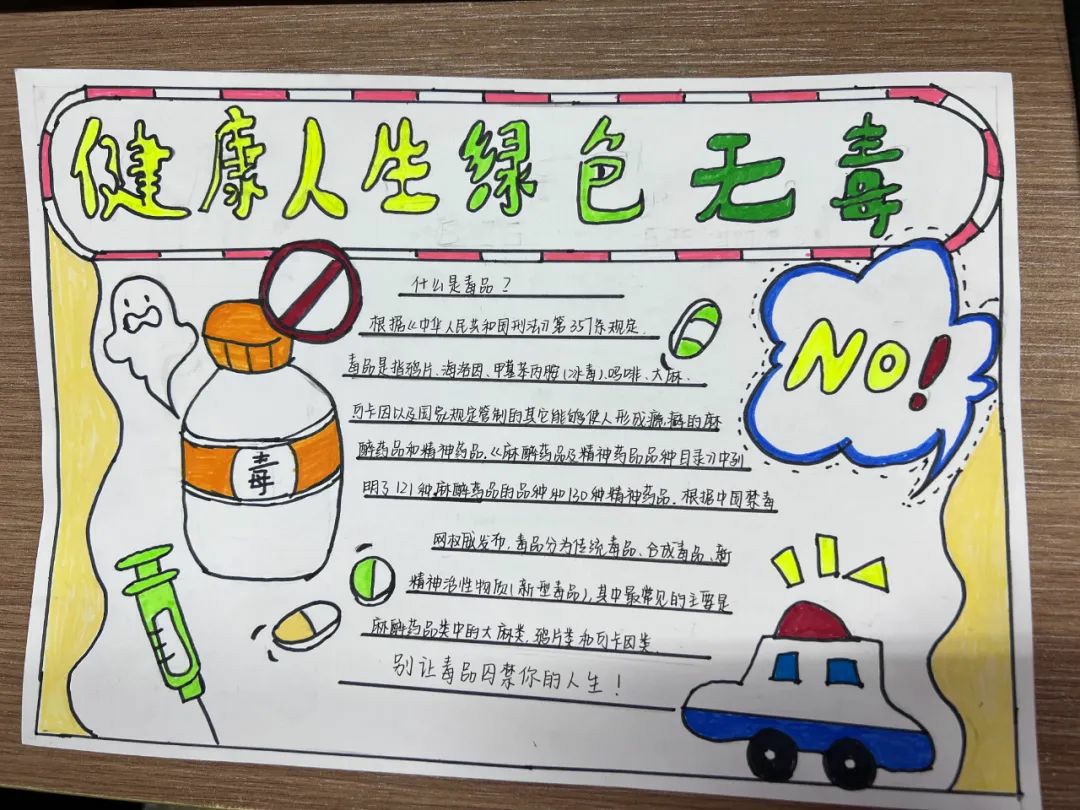 健康人生绿色无毒
什么是毒品？
根据《中华人民共和国刑法》第357条规定，
毒品是指鸦片、海洛因、甲基苯丙胺(冰毒)、吗啡、大麻、
可卡因以及国家规定管制的其它能够使人形成瘾癖的麻
醉药品和精神药品，《麻醉药品及精神药品品种目录》中列
明了121种麻醉药品的品种和130种精神药品。根据中国禁毒
网权威发布，毒品分为传统毒品、合成毒品、新
精神活性物质(新型毒品)，其中最常见的主要是
麻醉药品类中的大麻类，鸦片类和可卡因类。
别让毒品囚禁你的人生！
毒
NO!